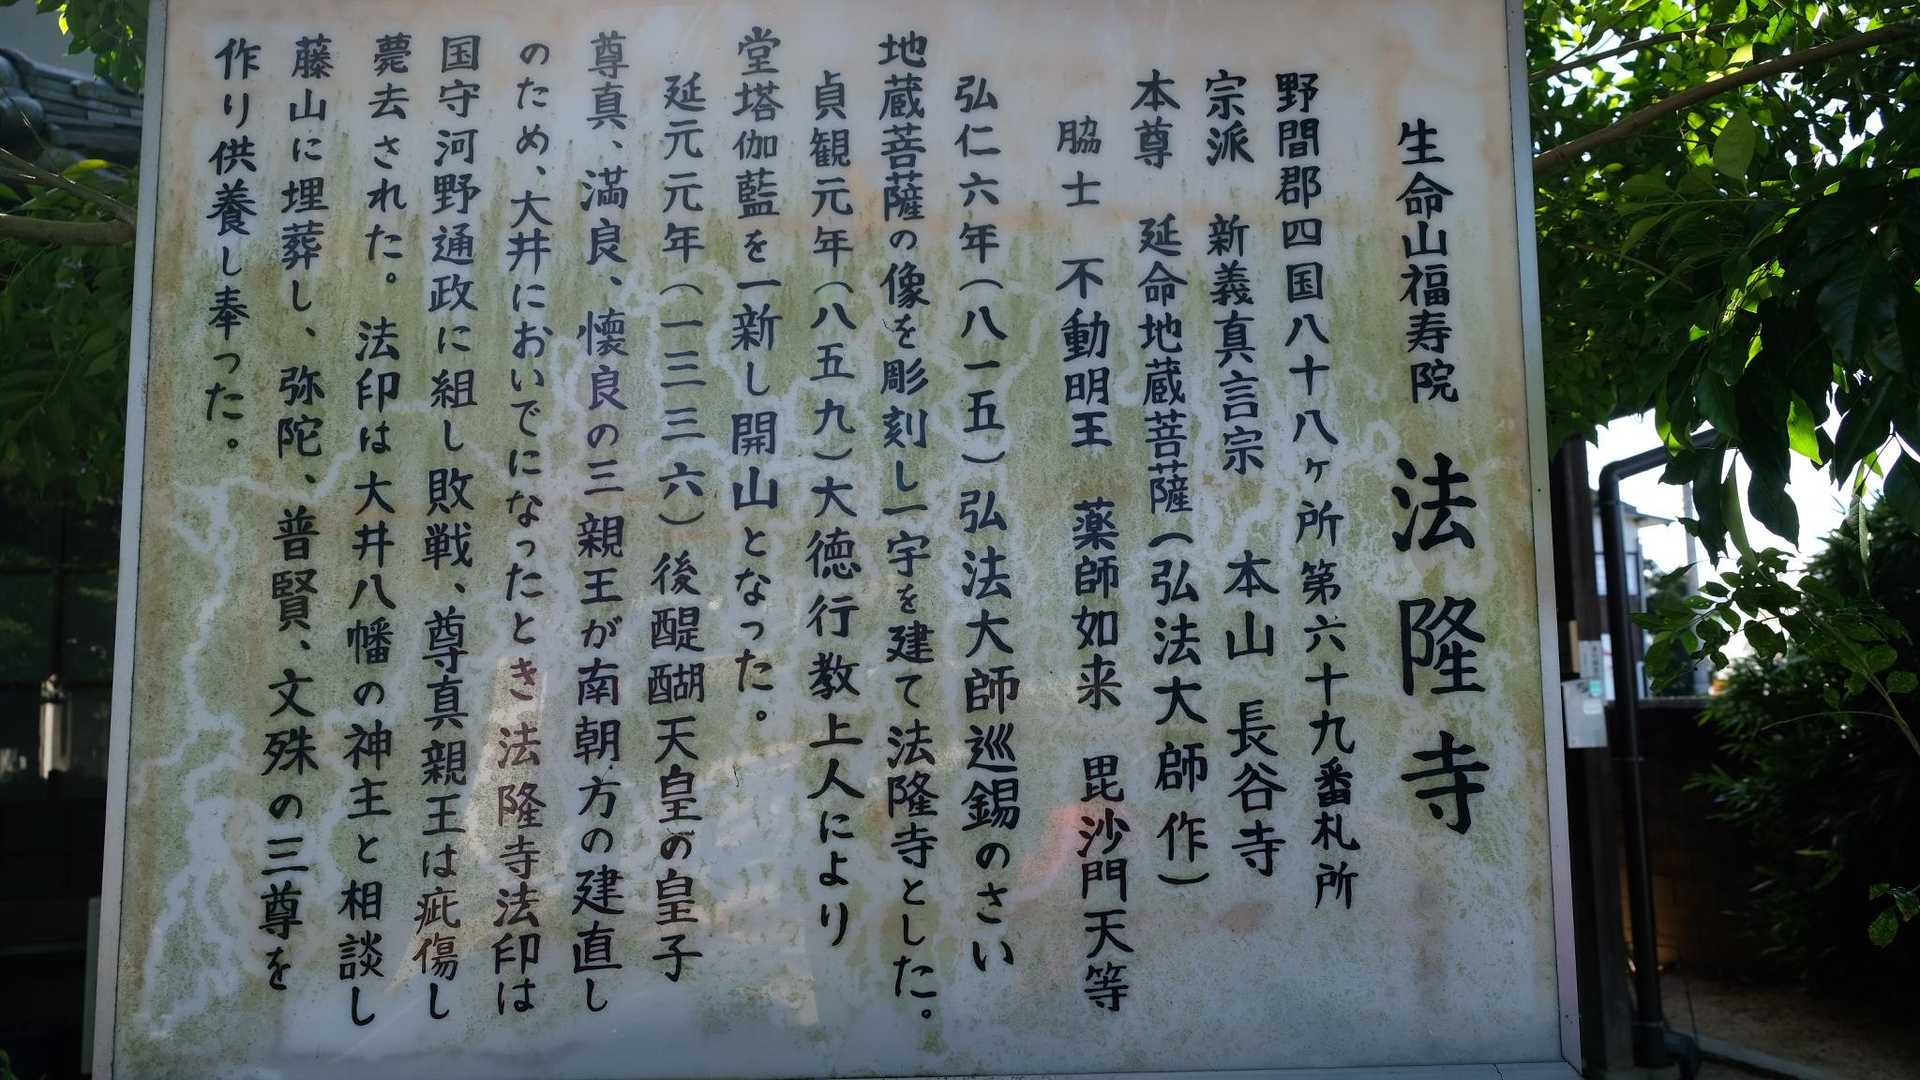 生命山福寿院　法隆寺
野間郡四国八十八ヶ所第六十九番札所
宗派　新義真言宗　本山　長谷寺
本尊　延命地蔵菩薩（弘法大師作）
脇士　不動明王　薬師如来　毘沙門天等
弘仁六年（八一五）弘法大師巡錫のさい
地蔵菩薩の像を彫刻し一宇を建て法隆寺とした。
貞観元年（八五九）大徳行教上人により
堂塔伽藍を一新し開山となった。
延元元年（一三三六）後醍醐天皇の皇子
尊真、満良、懐良の三親王が南朝方の建直し
のため、大井においでになったとき法隆寺法印は
国守河野通政に組し敗戦、尊真親王は疵傷し
薨去された。法印は大井八幡の神主と相談し
藤山に埋葬し、弥陀、普賢、文殊の三尊を
作り供養し奉った。